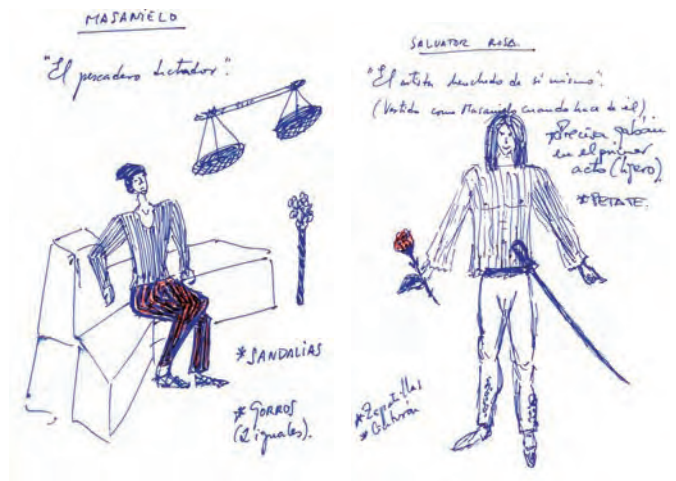 MASANIELO
"El pescadero dictador".
*SANDALIAS
*GORROS
(2 iguales).
SALVATOR ROSA.
"El artista henchido de sí mismo".
(Vestido como Masanielo cuando hace de él)
*Precisa gabán
en el primer
acto (ligero).
*PETATE.
*Zapatillas
*Cinturón